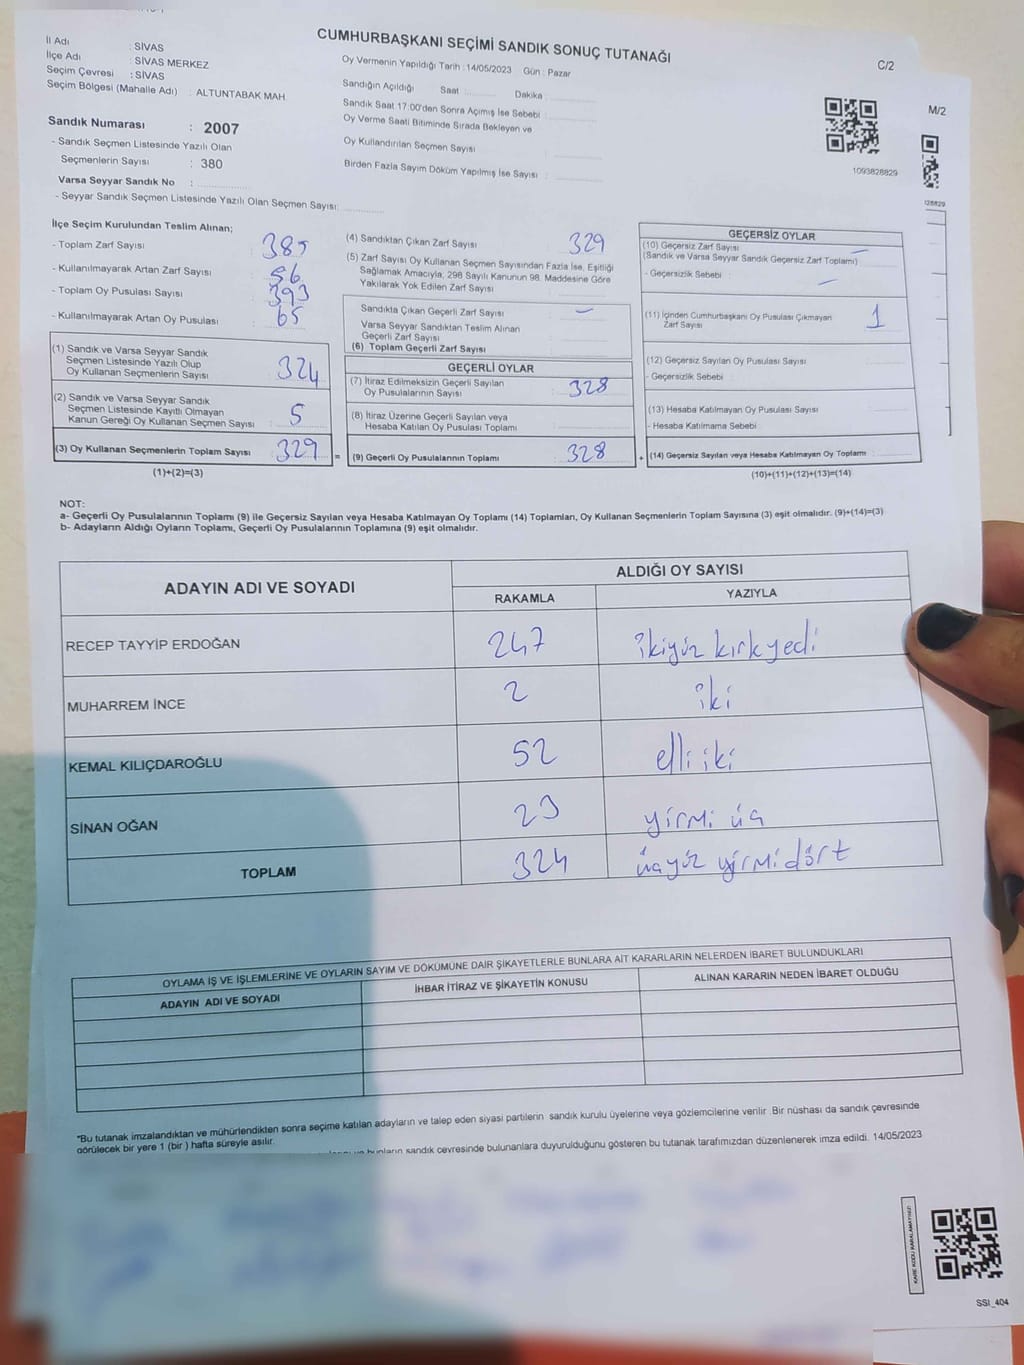 CUMHURBAŞKANI SEÇİMİ SANDIK SONUÇ TUTANAĞI
C/2
M/2
İl Adı : SİVAS
İlçe Adı : SİVAS MERKEZ
Seçim Çevresi : SİVAS
Seçim Bölgesi (Mahalle Adı) : ALTUNTABAK MAH
Sandık Numarası : 2007
- Sandık Seçmen Listesinde Yazılı Olan
Seçmenlerin Sayısı : 380
Varsa Seyyar Sandık No :
- Seyyar Sandık Seçmen Listesinde Yazılı Olan Seçmen Sayısı:
Oy Vermenin Yapıldığı Tarih : 14/05/2023 Gün : Pazar
Sandığın Açıldığı Saat Dakika
Sandık Saat 17:00'den Sonra Açımış İse Sebebi :
Oy Verme Saati Bitiminde Sırada Bekleyen ve
Oy Kullandırılan Seçmen Sayısı :
Birden Fazla Sayım Döküm Yapılmış İse Sayısı :
1093828829
İlçe Seçim Kurulundan Teslim Alınan;
- Toplam Zarf Sayısı : 385
- Kullanılmayarak Artan Zarf Sayısı : 56
- Toplam Oy Pusulası Sayısı : 393
- Kullanılmayarak Artan Oy Pusulası : 65
(1) Sandık ve Varsa Seyyar Sandık
Seçmen Listesinde Yazılı Olup
Oy Kullanan Seçmenlerin Sayısı : 324
(2) Sandık ve Varsa Seyyar Sandık
Seçmen Listesinde Kayıtlı Olmayan
Kanun Gereği Oy Kullanan Seçmen Sayısı : 5
(3) Oy Kullanan Seçmenlerin Toplam Sayısı : 329 =
(1)+(2)=(3)
(4) Sandıktan Çıkan Zarf Sayısı : 329
(5) Zarf Sayısı Oy Kullanan Seçmen Sayısından Fazla İse, Eşitliği
Sağlamak Amacıyla, 298 Sayılı Kanunun 98. Maddesine Göre
Yakılarak Yok Edilen Zarf Sayısı :
Sandıkta Çıkan Geçerli Zarf Sayısı : —
Varsa Seyyar Sandıktan Teslim Alınan
Geçerli Zarf Sayısı :
(6) Toplam Geçerli Zarf Sayısı
GEÇERLİ OYLAR
(7) İtiraz Edilmeksizin Geçerli Sayılan
Oy Pusulalarının Sayısı : 328
(8) İtiraz Üzerine Geçerli Sayılan veya
Hesaba Katılan Oy Pusulası Toplamı :
(9) Geçerli Oy Pusulalarının Toplamı : 328 +
GEÇERSİZ OYLAR
(10) Geçersiz Zarf Sayısı
(Sandık ve Varsa Seyyar Sandık Geçersiz Zarf Toplamı) : —
- Geçersizlik Sebebi : —
(11) İçinden Cumhurbaşkanı Oy Pusulası Çıkmayan
Zarf Sayısı : 1
(12) Geçersiz Sayılan Oy Pusulası Sayısı
- Geçersizlik Sebebi :
(13) Hesaba Katılmayan Oy Pusulası Sayısı
- Hesaba Katılmama Sebebi :
(14) Geçersiz Sayılan veya Hesaba Katılmayan Oy Toplamı :
(10)+(11)+(12)+(13)=(14)
NOT:
a- Geçerli Oy Pusulalarının Toplamı (9) ile Geçersiz Sayılan veya Hesaba Katılmayan Oy Toplamı (14) Toplamları, Oy Kullanan Seçmenlerin Toplam Sayısına (3) eşit olmalıdır. (9)+(14)=(3)
b- Adayların Aldığı Oyların Toplamı, Geçerli Oy Pusulalarının Toplamına (9) eşit olmalıdır.
ADAYIN ADI VE SOYADI
ALDIĞI OY SAYISI
RAKAMLA YAZIYLA
RECEP TAYYİP ERDOĞAN 247 ikiyüz kırkyedi
MUHARREM İNCE 2 iki
KEMAL KILIÇDAROĞLU 52 elli iki
SİNAN OĞAN 23 yirmi üç
TOPLAM 324 üçyüz yirmidört
OYLAMA İŞ VE İŞLEMLERİNE VE OYLARIN SAYIM VE DÖKÜMÜNE DAİR ŞİKAYETLERLE BUNLARA AİT KARARLARIN NELERDEN İBARET BULUNDUKLARI
ADAYIN ADI VE SOYADI İHBAR İTİRAZ VE ŞİKAYETİN KONUSU ALINAN KARARIN NEDEN İBARET OLDUĞU
*Bu tutanak imzalandıktan ve mühürlendikten sonra seçime katılan adayların ve talep eden siyasi partilerin sandık kurulu üyelerine veya gözlemcilerine verilir. Bir nüshası da sandık çevresinde
görülecek bir yere 1 (bir) hafta süreyle asılır.
bunların sandık çevresinde bulunanlara duyurulduğunu gösteren bu tutanak tarafımızdan düzenlenerek imza edildi. 14/05/2023
KARE KODU KARALAMAYINIZ!
SSI_404